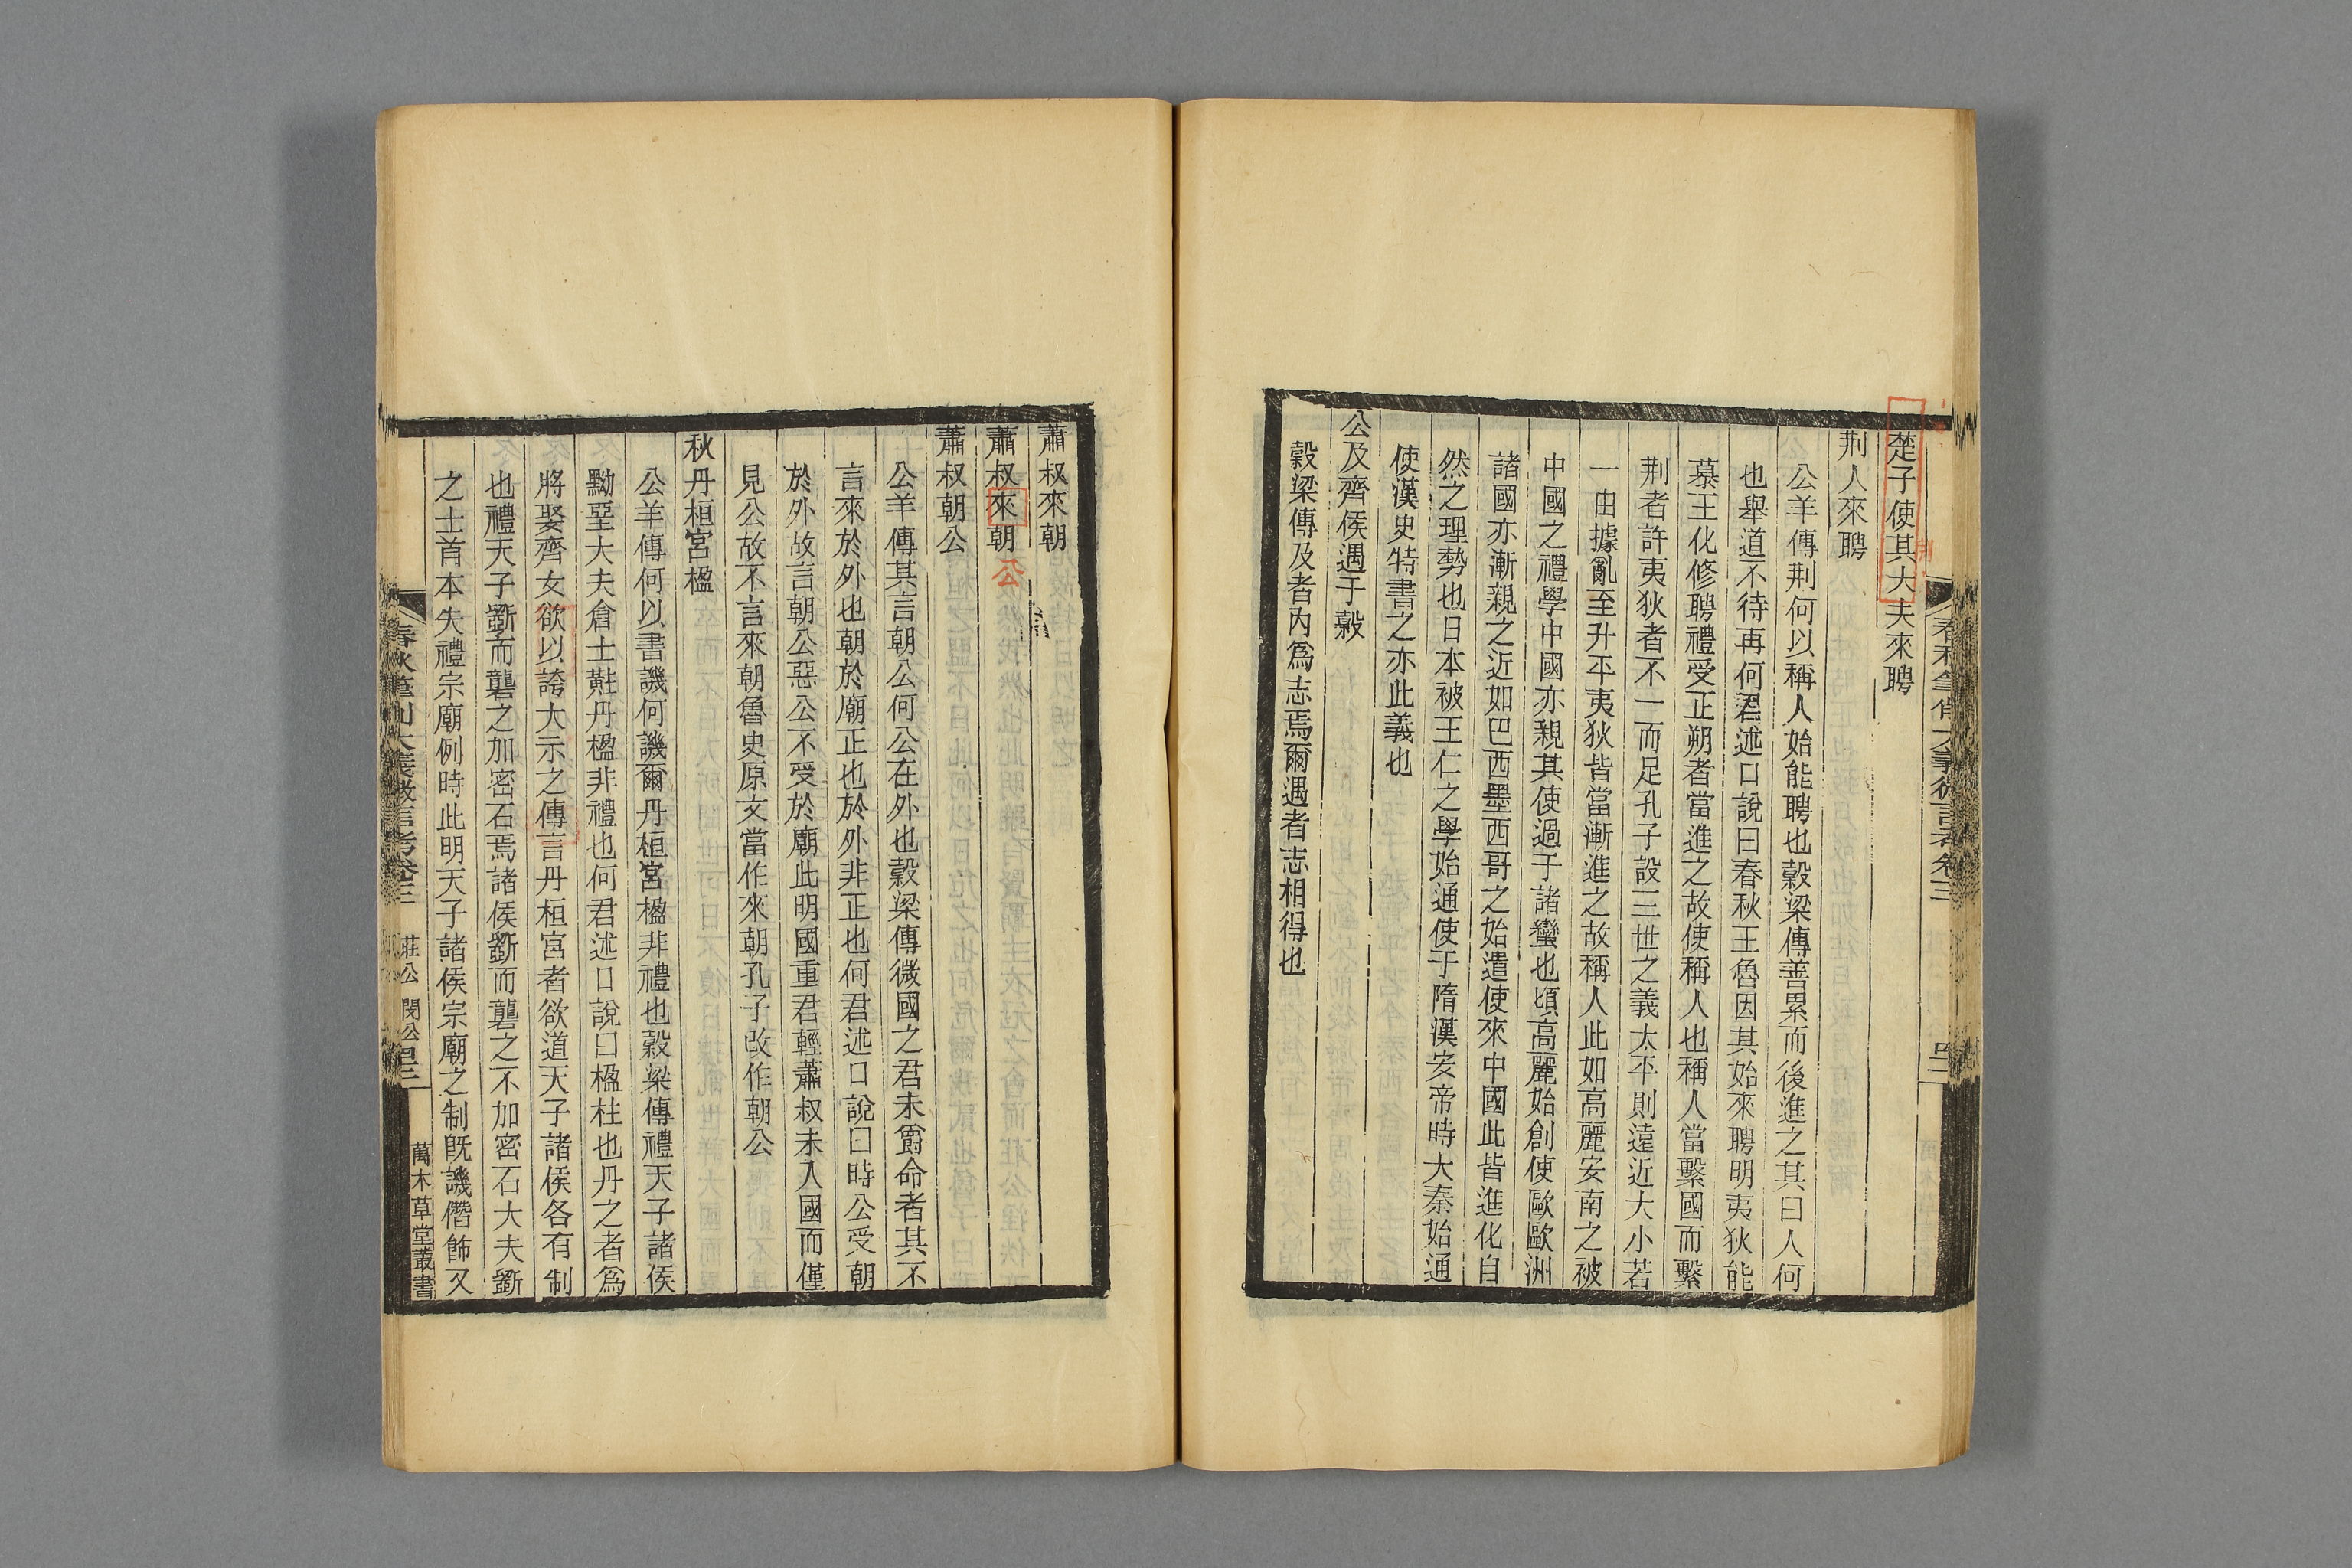 楚子使其大夫來聘
荆人來聘
公羊傳荆何以稱人始能聘也穀梁傳善累而後進之其曰人何
也舉道不待再何君述口說曰春秋王魯因其始來聘明夷狄能
慕王化修聘禮受正朔者當進之故使稱人也稱人當繫國而繫
荆者許夷狄者不一而足孔子設三世之義太平則遠近大小若
一由據亂至升平夷狄皆當漸進之故稱人此如高麗安南之被
中國之禮學中國亦親其使過于諸蠻也頃高麗始創使歐歐洲
諸國亦漸親之近如巴西墨西哥之始遣使來中國此皆進化自
然之理勢也日本被王仁之學始通使于隋漢安帝時大秦始通
使漢史特書之亦此義也
公及齊侯遇于穀
穀梁傳及者內爲志焉爾遇者志相得也
蕭叔來朝
蕭叔來朝 公
蕭叔朝公
公羊傳其言朝公何公在外也穀梁傳微國之君未爵命者其不
言來於外也朝於廟正也於外非正也何君述口說曰時公受朝
於外故言朝公惡公不受於廟此明國重君輕蕭叔未入國而僅
見公故不言來朝魯史原文當作來朝孔子改作朝公
秋丹桓宮楹
公羊傳何以書譏何譏爾丹桓宮楹非禮也穀梁傳禮天子諸侯
黝堊大夫倉士黈丹楹非禮也何君述口說曰楹柱也丹之者爲
將娶齊女欲以誇大示之傳言丹桓宮者欲道天子諸侯各有制
也禮天子斲而礱之加密石焉諸侯斲而礱之不加密石大夫斲
之士首本失禮宗廟例時此明天子諸侯宗廟之制旣譏僭飾又
春秋筆削大義微言考卷三 莊公 閔公
萬木草堂叢書